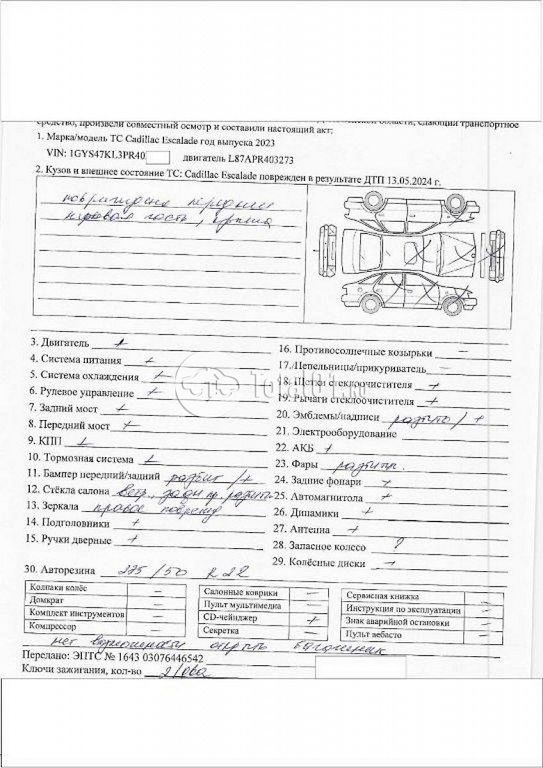 средство, произвели совместный осмотр и составили настоящий акт:
1. Марка/модель ТС Cadillac Escalade год выпуска 2023
VIN: 1GYS47KL3PR40 двигатель L87APR403273
2. Кузов и внешнее состояние ТС: Cadillac Escalade поврежден в результате ДТП 13.05.2024 г.
повреждена передняя
правая часть, крыша
3. Двигатель +
4. Система питания +
5. Система охлаждения +
6. Рулевое управление +
7. Задний мост +
8. Передний мост +
9. КПП +
10. Тормозная система +
11. Бампер передний/задний разбит /+
12. Стёкла салона ветр., задн пр. разбиты
13. Зеркала правое поврежд
14. Подголовники +
15. Ручки дверные +
16. Противосолнечные козырьки –
17. Пепельницы/прикуриватель –
18. Щетки стеклоочистителя +
19. Рычаги стеклоочистителя +
20. Эмблемы/надписи разбито / +
21. Электрооборудование –
22. АКБ +
23. Фары разб пр.
24. Задние фонари +
25. Автомагнитола +
26. Динамики +
27. Антенна +
28. Запасное колесо ?
29. Колёсные диски +
30. Авторезина 275/50 R22
Колпаки колёс –
Домкрат –
Комплект инструментов –
Компрессор –
Салонные коврики –
Пульт мультимедиа –
CD-чейнджер +
Секретка –
Сервисная книжка –
Инструкция по эксплуатации –
Знак аварийной остановки –
Пульт вебасто –
нет возможности открыть багажник
Передано: ЭПТС № 1643 03076446542
Ключи зажигания, кол-во 2/два